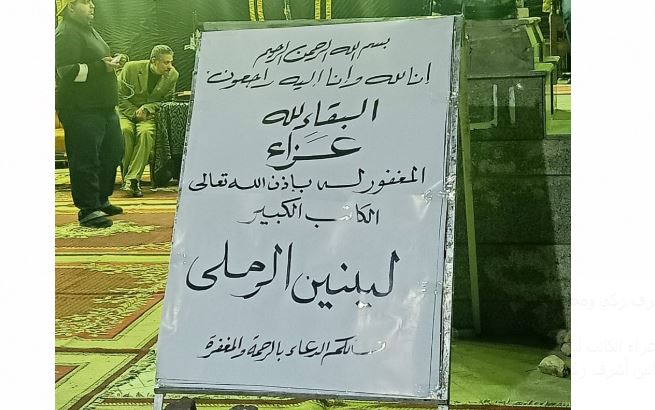 بسم الله الرحمن الرحيم
إنا لله وإنا إليه راجعون
البقاء لله
عَزاء
المغفور له باذن الله تعالى
الكاتب الكبير
لينين الرملى
نسألكم الدعاء بالرحمة والمغفرة